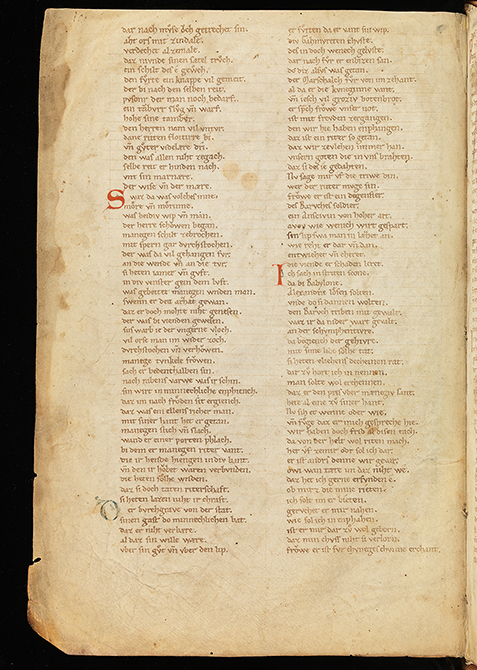 dar nach mvse och gerechet sin.
aht ors mit zindale.
verdechet al zemale.
daz nivnde sinen satel trvch.
ein schilt des e gewch.
den fvrte ein knappe vil gemeit.
der bi nach den selben reit.
pvsonr der man noch bedarf.
ein tambvrr slvg vn warf.
hohe sine tambvr.
den herren nam vil vntvr.
dane riten floitierre bi.
vn gvter videlare dri.
den was allen niht zegach.
selbe reit er hinden nach.
vnt sin marnære.
der wise vn der mære.
Swaz da was volches inne.
more vn mœrinne.
was beidiv wip vn man.
der herre schowen began.
manegen schilt zebrochen.
mit spern gar dvrchstochen.
der was da vil gehangen fvr.
an die wende vn an die tvr.
si heten iamer vn gvft.
in div venster gein dem lvft.
was gebettet manegen wnden man.
swenn er den arzat gewan.
daz er doch mohte niht genesen.
der was bi vienden gewesen.
sus warb ie der vngerne vloch.
vil orse man im wider zoch.
dvrchstochen vn verhowen.
manege tvnkele frowen.
sach er bedenthalben sin.
nach rabens varwe was ir schin.
sin wirt in minnechliche enphiench.
daz im nach frouden sit ergiench.
daz was ein ellens richer man.
mit siner hant het er getan.
manegen stich vn slach.
wand er einer porten phlach.
bi dem er manegen riter vant.
die ir hende hiengen in div lant.
vn den ir hobet waren verbvnden.
die heten solhe wnden.
daz si doch taten riterschaft.
si heten lazen niht ir chraft.
Der bvrchgrave von der stat.
sinen gast do minnechlichen bat.
daz er niht verbære.
al daz sin wille wære.
vber sin gvt vn vber den lip.
er fvrten da er vant sin wip.
div Gahmvreten chvste.
des in doch wenech gelvste.
dar nach fvr er enbizen san.
do diz alsus was getan.
der Marschalch fvr von im zehant.
al da er die kvneginne vant.
vn iesch vil groziv botenbrot.
er sprh frowe vnser not.
ist mit frevden zergangen.
den wir hie haben enphangen.
daz ist ein riter so getan.
daz wir ze vlehen immer han.
vnsern goten die in vns brahten.
daz si des ie gedahten.
Nv sage mir vf die triwe din.
wer der riter mvge sin.
frowe er ist ein degen fier.
des Baruches soldier.
ein Anscivin von hoher art.
avoy wie wenich wirt gespart.
sin lip swa man in læzet an.
wie rehte er dar vn dan.
entwichet vn chere.
die viende er schaden lere.
Ich sach in striten scone.
da di Babylone.
Alexandrie losen solten.
vnde do si dannen wolten.
den Baruch triben mit gewalt.
waz ir da nider wart gevalt.
an der schvmphentivre.
da begiench der gehivre.
mit sime libe solhe tat.
si heten vliehens decheinen rat.
dar zv hort ich in nennen.
man solte wol erchennen.
daz er den pris vber manegiv lant.
hete al eine zv siner hant.
Nv sih et wenne oder wie.
vn fvge daz er mich gespreche hie.
wir haben doch frid al disen tach.
da von der helt wol riten mach.
her vf ze mir ode sol ich dar.
er ist anders denne wir gevar.
owi wan tæte im daz niht we.
daz het ich gerne erfvnden e.
ob mirz die mine rieten.
ich solt im ere bieten.
gervchet er mir nahen.
wie sol ich in enphahen.
ist er mir dar zv wol geborn.
daz min chvs niht si verlorn.
frowe er ist fvr chvneges chvnne erchant.